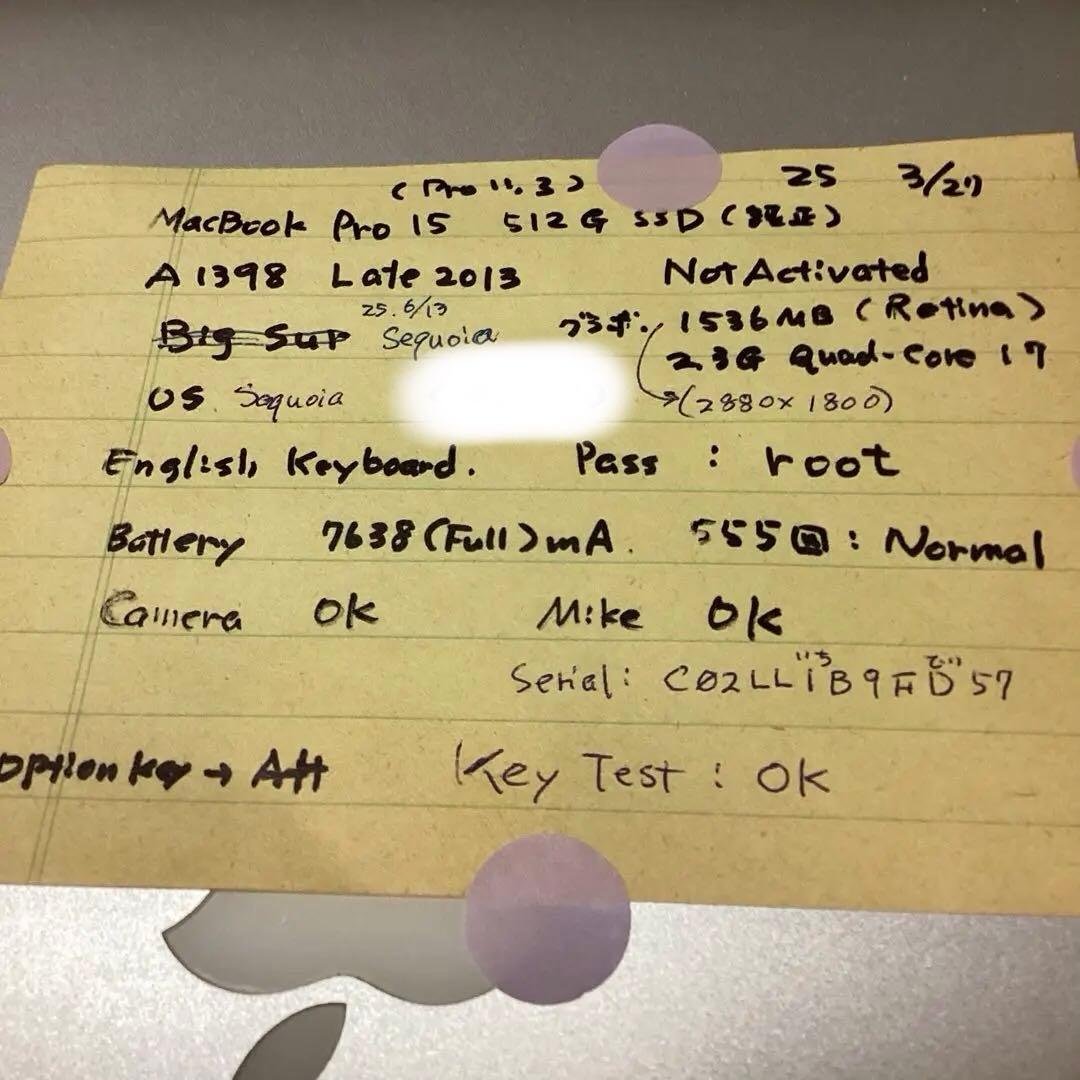 (Pro 11.3) 25 3/27
MacBook Pro 15 512G SSD (純正)
A1398 Late 2013 Not Activated
Big Sur 25.6/13 Sequoia グラボ. 1536MB (Retina)
2.3G Quad-Core i7
OS Sequoia (2880×1800)
English Keyboard. Pass : root
Battery 7638(Full)mA. 555回 : Normal
Camera Ok Mike Ok
いち でぃ
Serial: C02LL1B9FD57
Option key → Alt Key Test : Ok